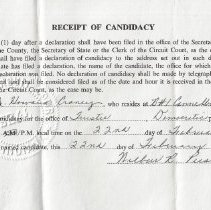 RECEIPT OF CANDIDACY
(1) day after a declaration shall have been filed in the office of the Secretar
the County, the Secretary of State or the Clerk of the Circuit Court, as the
shall have filed a declaration of candidacy to the address set out in such d
ate has filed a declaration, the name of the candidate, the office for which
declaration was filed. No declaration of candidacy shall be made by telegraph
and shall be considered filed as of the date and hour it is received in the
Circuit Court, as the case may be.
Howard Croney who resides at R#1 Connelle
candidacy for the office of Trustee Democratic
P.M. local time on the 22nd day of Februa
of candidate, this 22nd day of February
Wilbur